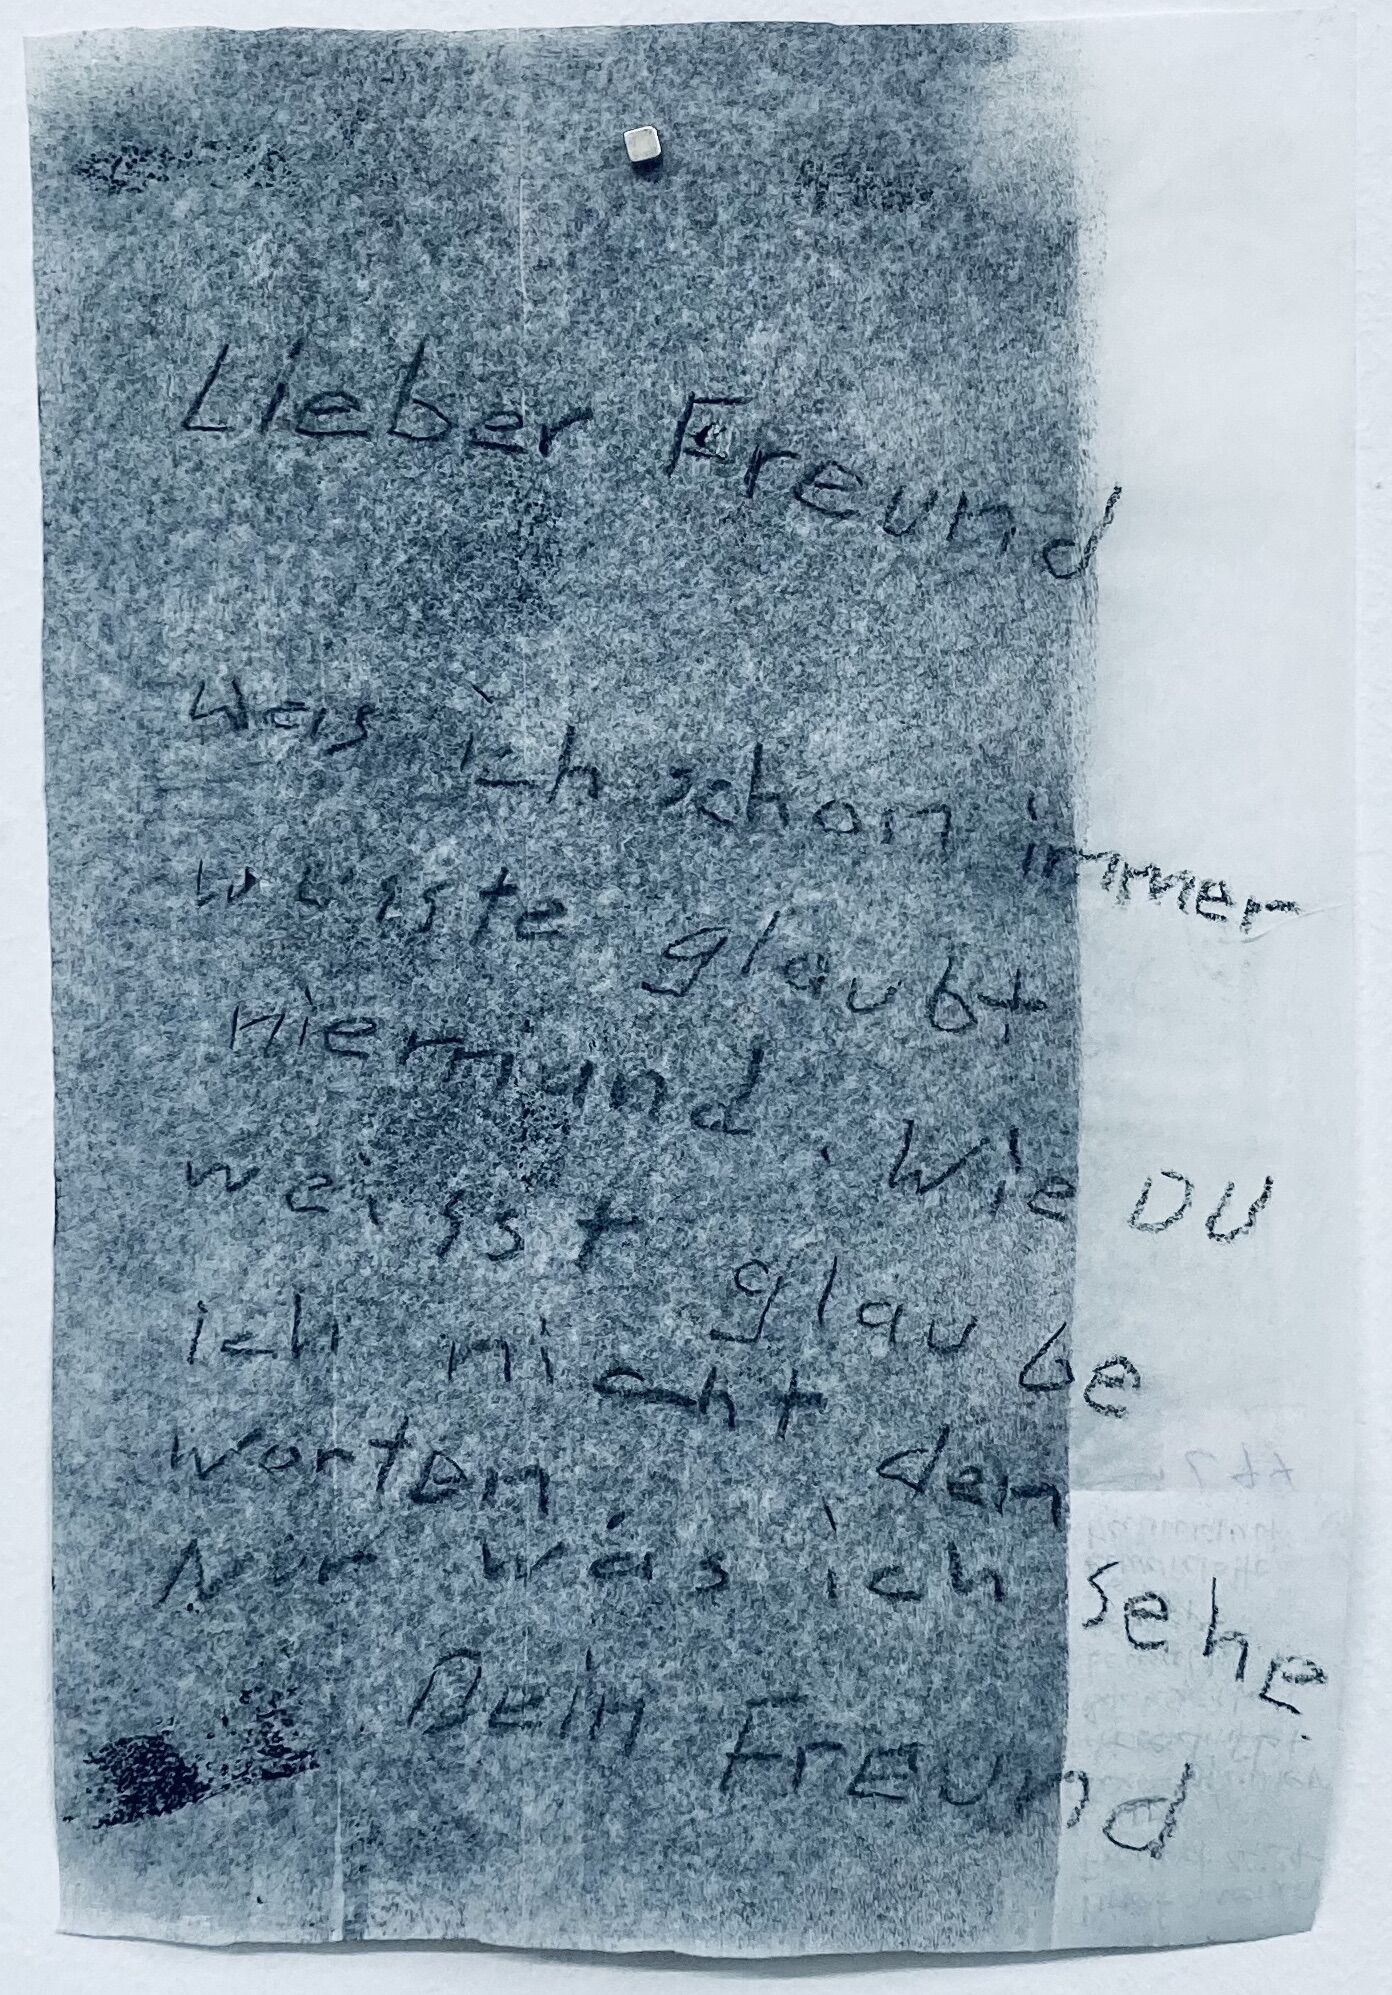 Lieber Freund
Was ich schon immer
wuste glaubt
niemand. Wie DU
weisst glaube
ich nicht den
worten.
Nur was ich sehe.
Dein Freund